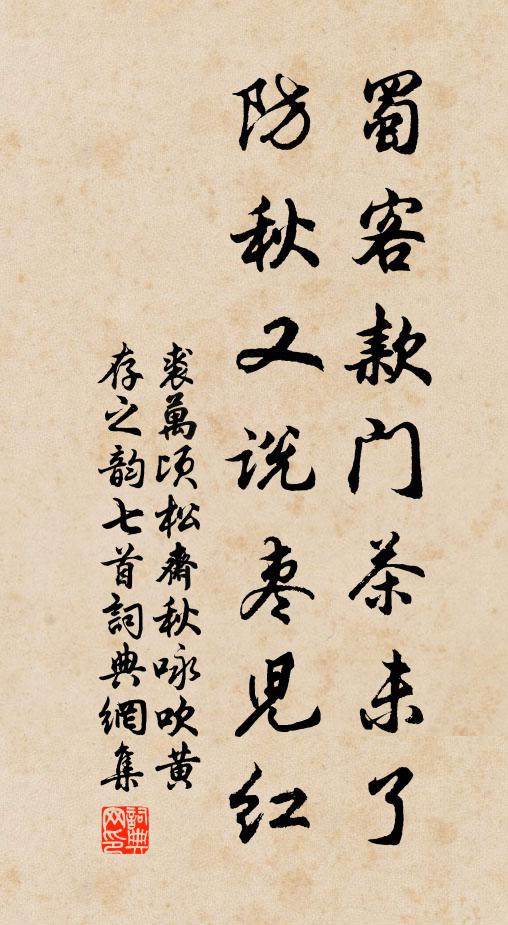 蜀客款门茶未了
防秋又说枣儿红
裘萬頃松齋秋咏吹黄
存之韵七首詞典網集
詞典网印